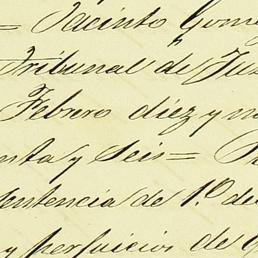 = Jacinto Gome
Tribunal de Jus
Febrero diez y nu
enta y Seis =
Sentencia de 10 de
y perjuicios de